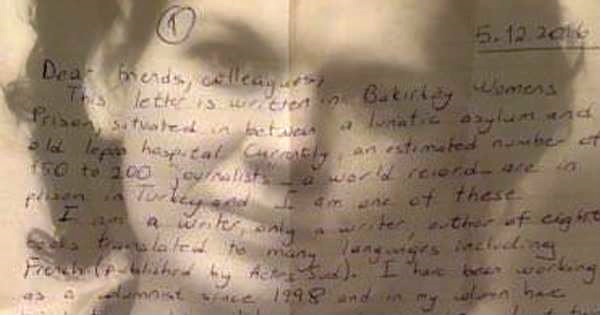 1
5.12.2016
Dear friends, colleagues,
This letter is written in Bakirköy Womens
Prison, situated in between a lunatic asylum and
old lepra hospital. Currently, an estimated number of
150 to 200 journalists _ a world record_ are in
prison in Turkey and I am one of these
I am a writer, only a writer, author of eight
books translated to many languages including
French (published by Actes Sud). I have been working
as a columnist since 1998 and in my column have